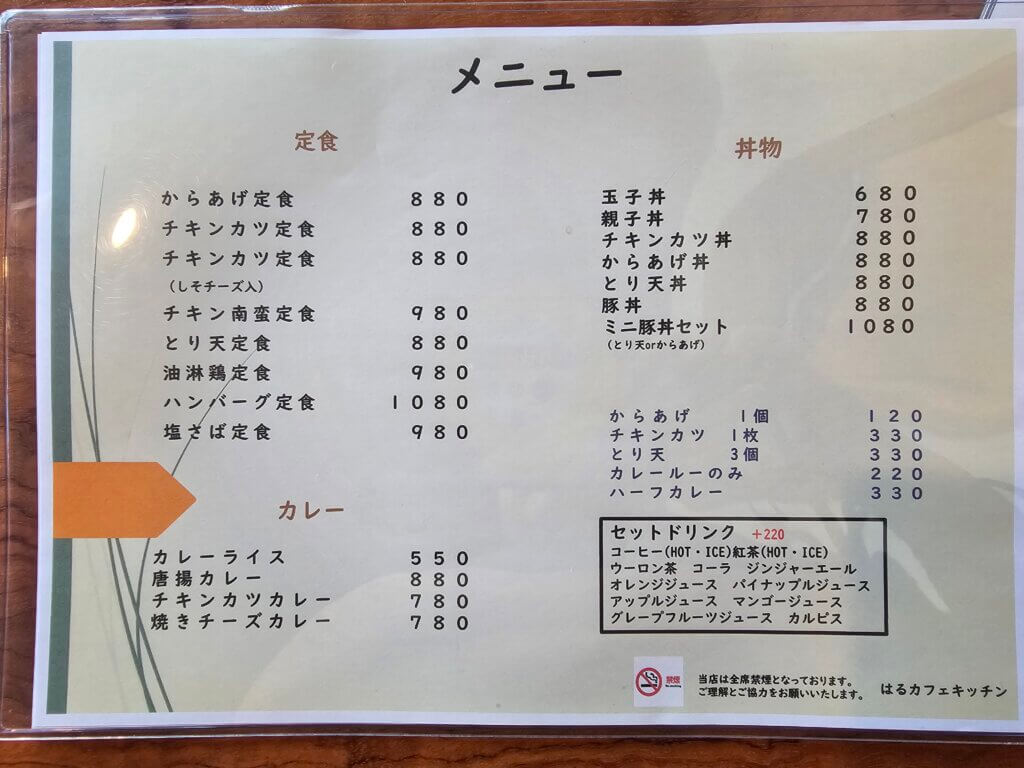 メニュー
定食
からあげ定食 880
チキンカツ定食 880
チキンカツ定食 880
(しそチーズ入)
チキン南蛮定食 980
とり天定食 880
油淋鶏定食 980
ハンバーグ定食 1080
塩さば定食 980
カレー
カレーライス 550
唐揚カレー 880
チキンカツカレー 780
焼きチーズカレー 780
丼物
玉子丼 680
親子丼 780
チキンカツ丼 880
からあげ丼 880
とり天丼 880
豚丼 880
ミニ豚丼セット 1080
(とり天orからあげ)
からあげ 1個 120
チキンカツ 1枚 330
とり天 3個 330
カレールーのみ 220
ハーフカレー 330
セットドリンク +220
コーヒー(HOT・ICE)紅茶(HOT・ICE)
ウーロン茶 コーラ ジンジャーエール
オレンジジュース パイナップルジュース
アップルジュース マンゴージュース
グレープフルーツジュース カルピス
禁煙
No smoking
当店は全席禁煙となっております。
ご理解とご協力をお願いいたします。
はるカフェキッチン